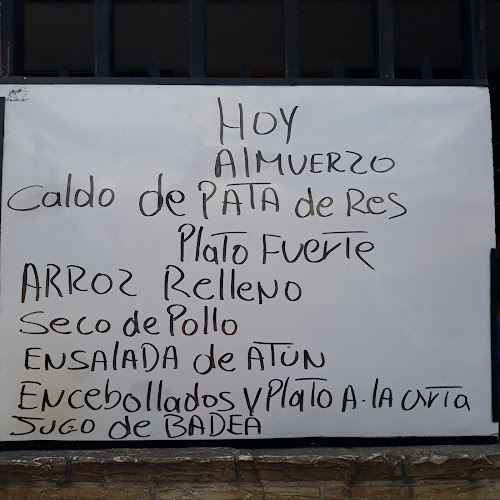 HOY
AlMUERZO
Caldo de PATA de Res
Plato Fuerte
ARROZ RelleNO
Seco de Pollo
ENSAlADA de ATUN
Encebollados Y Plato A.lA CArTa
JUGO de BADEA